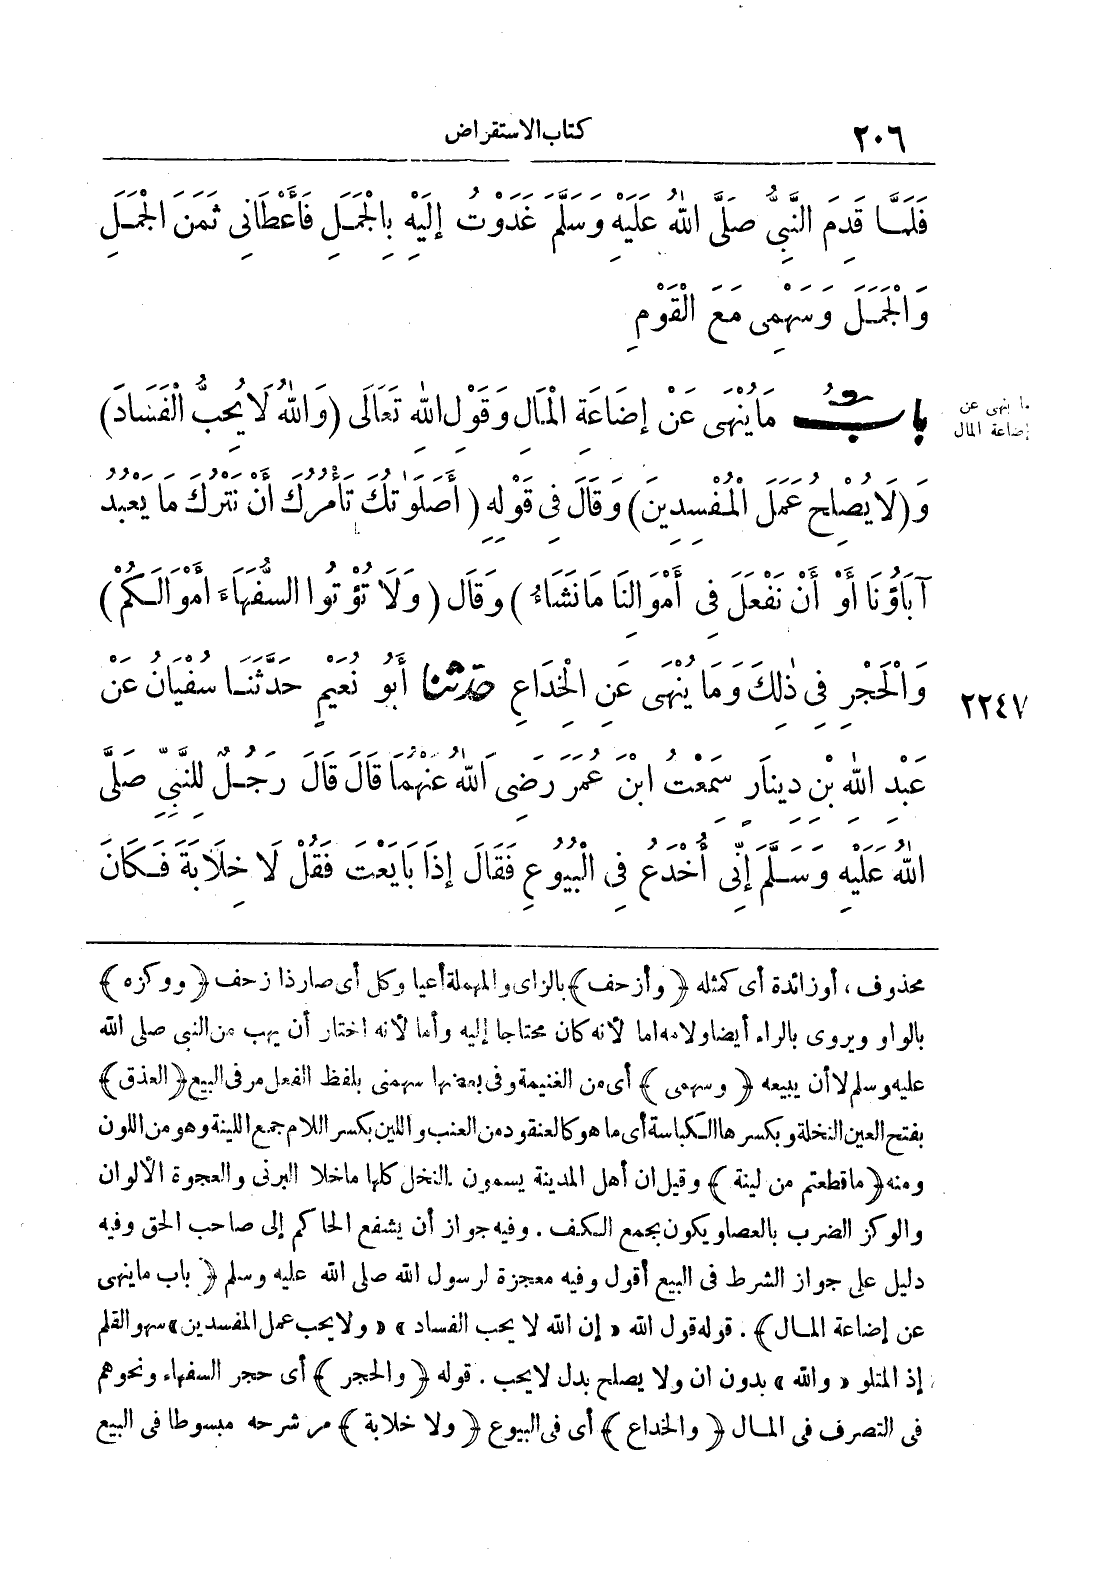 ٢٠٦ كتاب الاستقراض
فَلَمَّا قَدِمَ النَّبِيُّ صَلَّى اللهُ عَلَيْهِ وَسَلَّمَ غَدَوْتُ إلَيْهِ بِالْجَمَلِ فَأَعْطَانِى ثَمَنَ الْجَمَلِ
وَالْجَمَلَ وَسَهْمِى مَعَ الْقَوْمِ
بابُ مَا يُنْهَى عَنْ إضَاعَةِ الْمَالِ وَقَوْلِ اللهِ تَعَالَى (وَاللهُ لَا يُحِبُّ الْفَسَادَ)
ما ينهى عن
إضاعة المال
وَ(لَا يُصْلِحُ عَمَلَ الْمُفْسِدِينَ) وَقَالَ فِى قَوْلِهِ (أَصَلَوَاتُكَ تَأْمُرُكَ أَنْ نَتْرُكَ مَا يَعْبُدُ
آبَاؤُنَا أَوْ أَنْ نَفْعَلَ فِى أَمْوَالِنَا مَا نَشَاءُ) وَقَالَ (وَلَا تُؤْتُوا السُّفَهَاءَ أَمْوَالَكُمْ)
وَالْحَجْرِ فِى ذٰلِكَ وَمَا يُنْهَى عَنِ الْخِدَاعِ حدثنا أَبُو نُعَيْمٍ حَدَّثَنَا سُفْيَانُ عَنْ
٢٢٤٧
عَبْدِ اللهِ بْنِ دِينَارٍ سَمِعْتُ ابْنَ عُمَرَ رَضِىَ اللهُ عَنْهُمَا قَالَ قَالَ رَجُلٌ لِلنَّبِيِّ صَلَّى
اللهُ عَلَيْهِ وَسَلَّمَ إنِّى أُخْدَعُ فِى الْبُيُوعِ فَقَالَ إذَا بَايَعْتَ فَقُلْ لَا خِلَابَةَ فَكَانَ
محذوف، أوزائدة أى كمثله ﴿وأزحف﴾ بالزاى والمهملة أعيا وكل أى صار ذا زحف ﴿ووكزه﴾
بالواو ويروى بالراء أيضا ولامه اما لأنه كان محتاجا إليه وأما لأنه اختار أن يهب من النبى صلى الله
عليه وسلم لا أن يبيعه ﴿وسهمى﴾ أى من الغنيمة وفى بعضها سهمنى بلفظ الفعل مر فى البيع ﴿العذق﴾
بفتح العين النخلة وبكسرها الكباسة أى ما هو كالعنقود من العنب واللين بكسر اللام جمع اللينة وهو من اللون
ومنه ﴿ماقطعتم من لينة﴾ وقيل ان أهل المدينة يسمون النخل كلها ماخلا البرنى والعجوة الألوان
والوكز الضرب بالعصا ويكون بجمع الكف. وفيه جواز أن يشفع الحاكم إلى صاحب الحق وفيه
دليل على جواز الشرط فى البيع أقول وفيه معجزة لرسول الله صلى الله عليه وسلم ﴿باب ما ينهى
عن إضاعة المال﴾. قوله قول الله «إن الله لا يحب الفساد» «ولا يحب عمل المفسدين» سهو القلم
إذ المتلو «والله» بدون ان ولا يصلح بدل لا يحب. قوله ﴿والحجر﴾ أى حجر السفهاء ونحوهم
فى التصرف فى المال ﴿والخداع﴾ أى فى البيوع ﴿ولا خلابة﴾ مر شرحه مبسوطا فى البيع